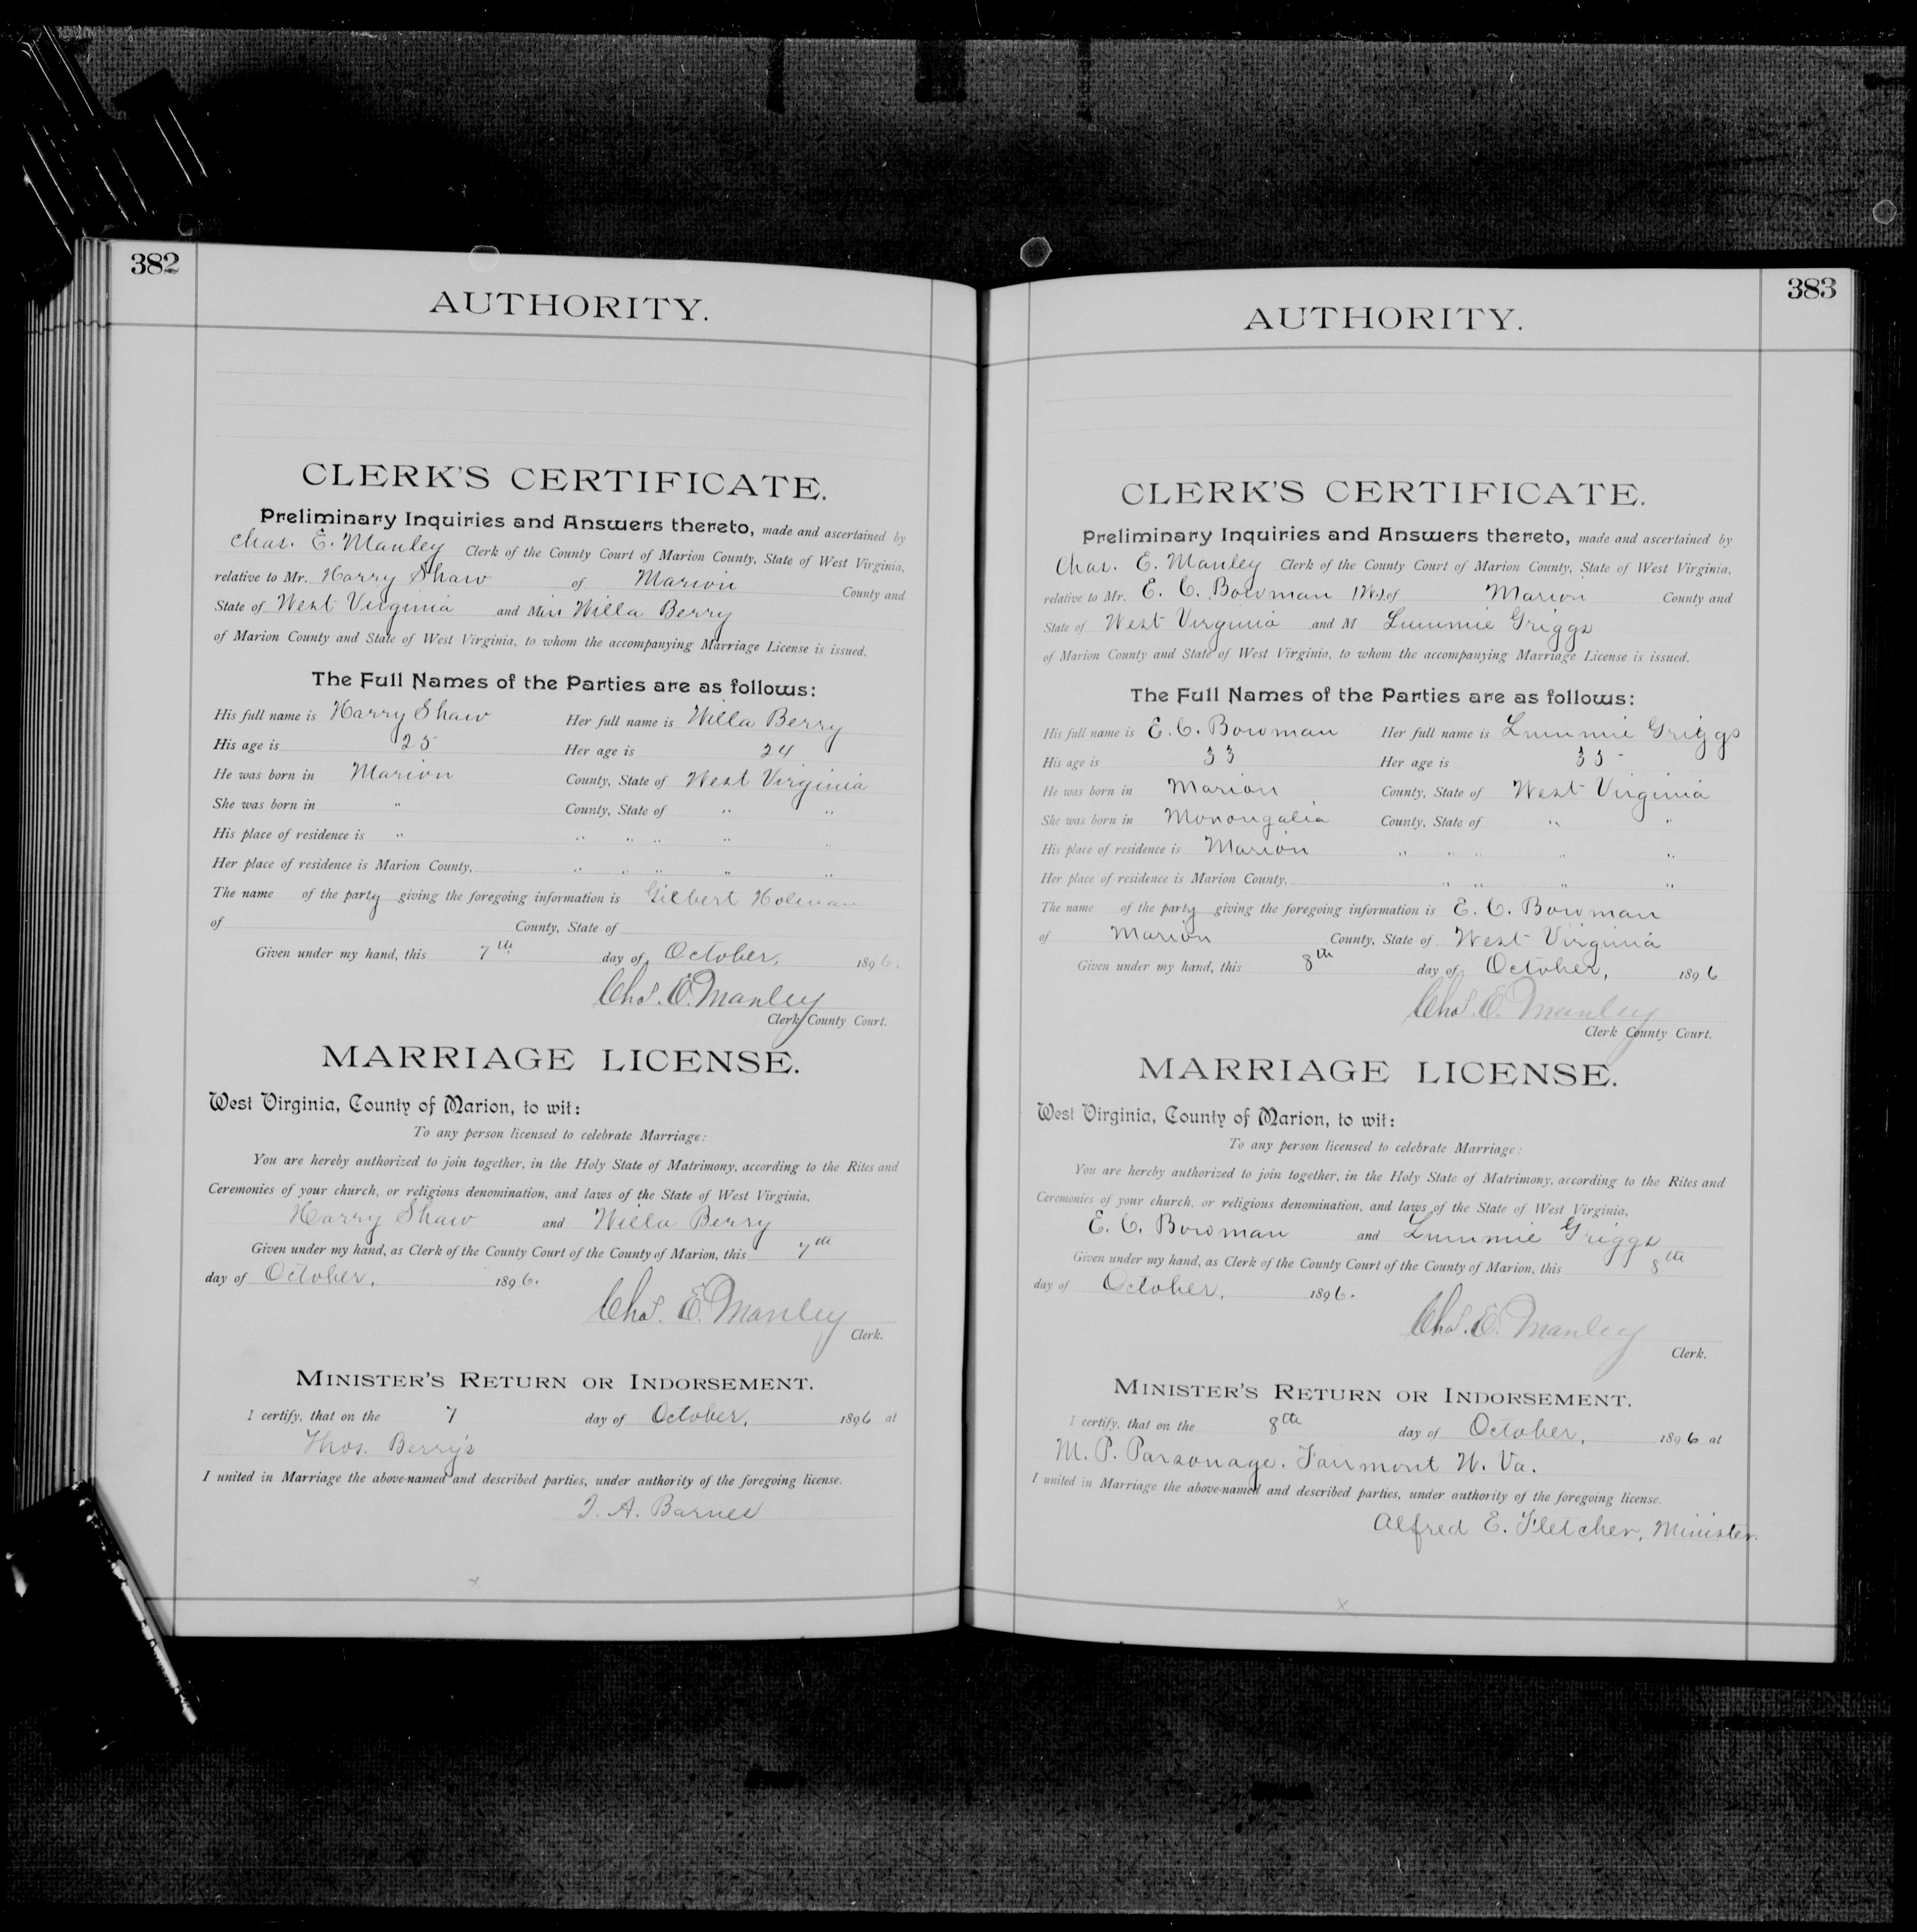 382
AUTHORITY.
CLERK'S CERTIFICATE.
Preliminary Inquiries and Answers thereto, made and ascertained by
Chas. E. Manley Clerk of the County Court of Marion County, State of West Virginia,
relative to Mr. Harry Shaw of Marion County and
State of West Virginia and Miss Willa Berry
of Marion County and State of West Virginia, to whom the accompanying Marriage License is issued.
The Full Names of the Parties are as follows:
His full name is Harry Shaw Her full name is Willa Berry
His age is 25 Her age is 24
He was born in Marion County, State of West Virginia
She was born in " County, State of " "
His place of residence is " " " " " "
Her place of residence is Marion County, " " " " "
The name of the party giving the foregoing information is Gilbert Holeman
of County, State of
Given under my hand, this 7th day of October, 1896.
Chas. E. Manley
Clerk County Court.
MARRIAGE LICENSE.
West Virginia, County of Marion, to wit:
To any person licensed to celebrate Marriage:
You are hereby authorized to join together, in the Holy State of Matrimony, according to the Rites and
Ceremonies of your church, or religious denomination, and laws of the State of West Virginia,
Harry Shaw and Willa Berry
Given under my hand, as Clerk of the County Court of the County of Marion, this 7th
day of October, 1896.
Chas. E. Manley
Clerk.
MINISTER'S RETURN OR INDORSEMENT.
I certify, that on the 7 day of October, 1896 at
Thos. Berry's
I united in Marriage the above-named and described parties, under authority of the foregoing license.
I. A. Barnes
x
383
AUTHORITY.
CLERK'S CERTIFICATE.
Preliminary Inquiries and Answers thereto, made and ascertained by
Chas. E. Manley Clerk of the County Court of Marion County, State of West Virginia,
relative to Mr. E. C. Bowman (W.) of Marion County and
State of West Virginia and M Lummie Griggs
of Marion County and State of West Virginia, to whom the accompanying Marriage License is issued.
The Full Names of the Parties are as follows:
His full name is E. C. Bowman Her full name is Lummie Griggs
His age is 33 Her age is 35
He was born in Marion County, State of West Virginia
She was born in Monongalia County, State of " "
His place of residence is Marion " " " " "
Her place of residence is Marion County, " " " "
The name of the party giving the foregoing information is E. C. Bowman
of Marion County, State of West Virginia
Given under my hand, this 8th day of October, 1896
Chas. E. Manley
Clerk County Court.
MARRIAGE LICENSE.
West Virginia, County of Marion, to wit:
To any person licensed to celebrate Marriage:
You are hereby authorized to join together, in the Holy State of Matrimony, according to the Rites and
Ceremonies of your church, or religious denomination, and laws of the State of West Virginia,
E. C. Bowman and Lummie Griggs
Given under my hand, as Clerk of the County Court of the County of Marion, this 8th
day of October, 1896.
Chas. E. Manley
Clerk.
MINISTER'S RETURN OR INDORSEMENT.
I certify, that on the 8th day of October, 1896 at
M. P. Parsonage. Fairmont W. Va.
I united in Marriage the above-named and described parties, under authority of the foregoing license.
Alfred E. Fletcher, Minister.
x